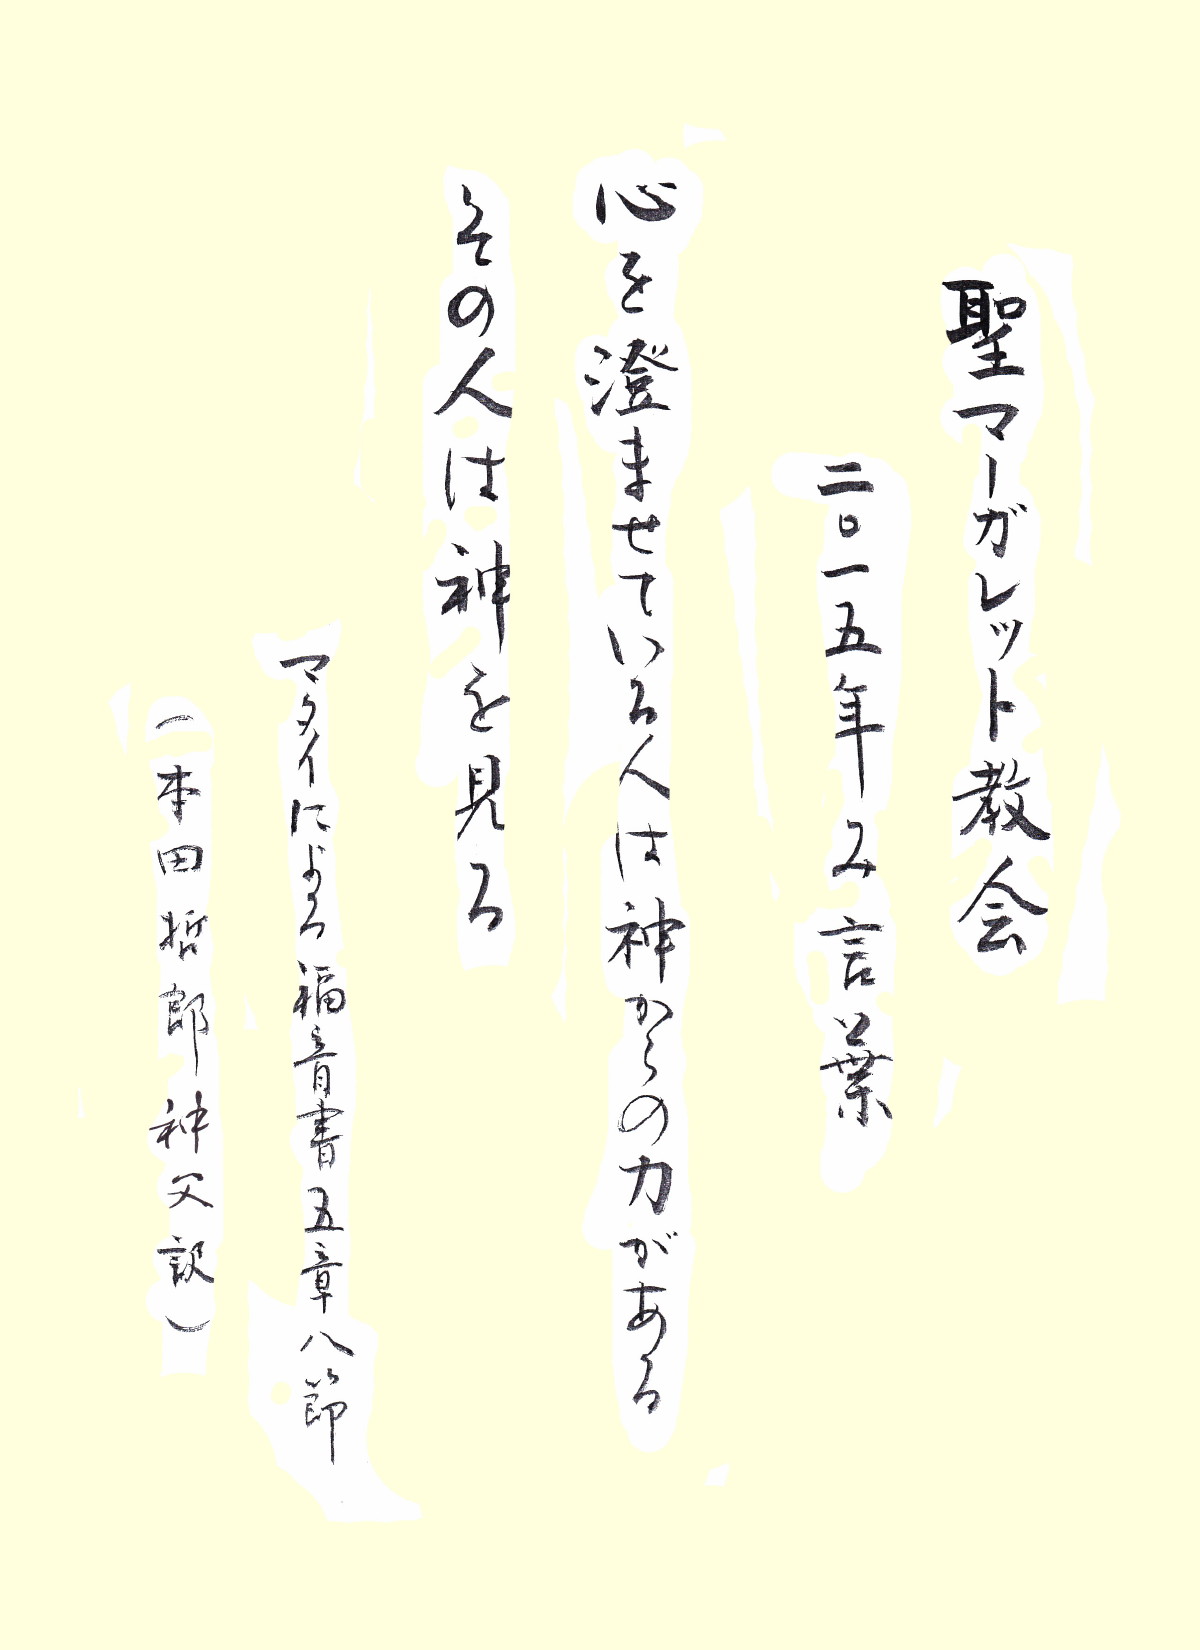 聖マーガレット教会
二〇一五年み言葉
心を澄ませている人は神からの力がある
その人は神を見る
マタイによる福音書五章八節
(本田哲郎神父訳)